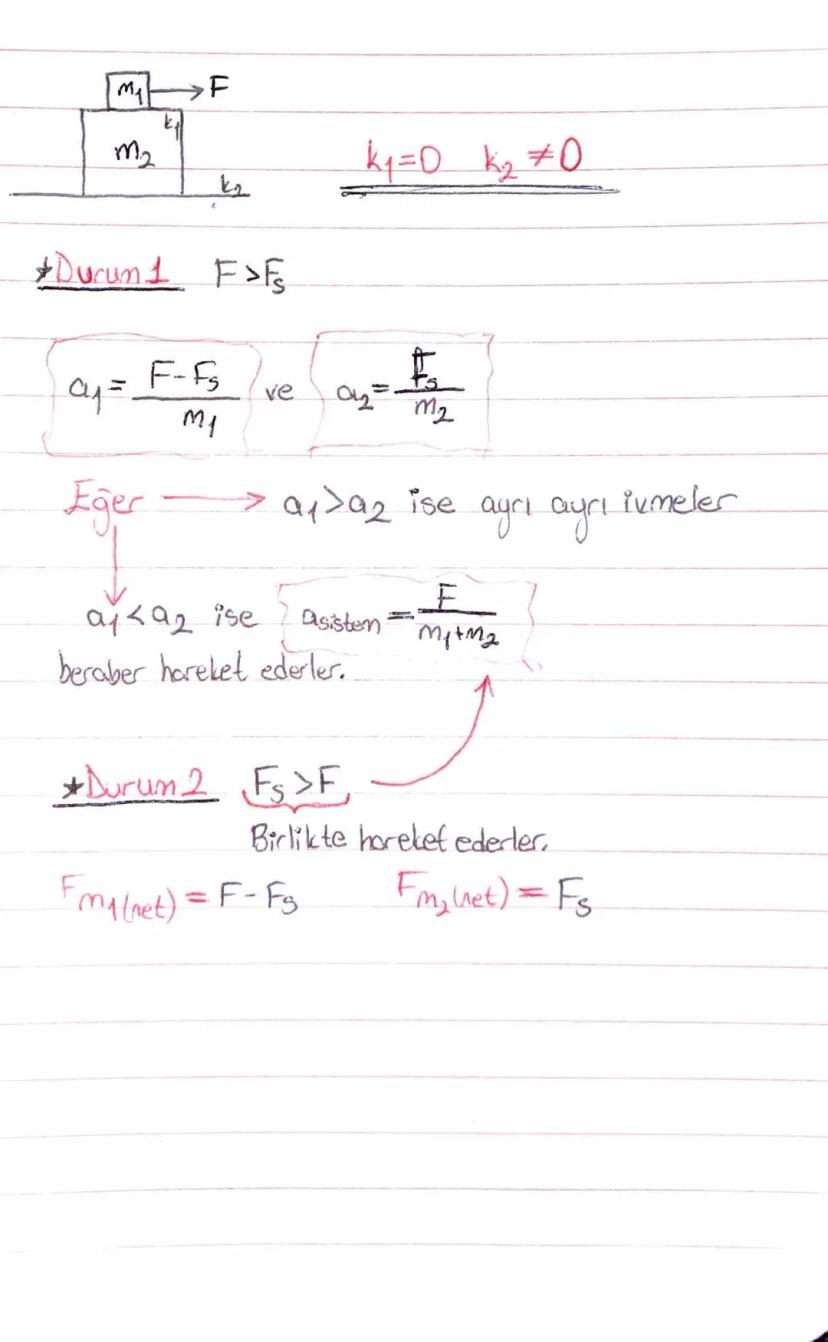 m₁ → F
k₁
m₂
k₂
k₁=0 k₂ ≠0
*Durum 1 F>Fs
a₁ = F-Fs / m₁ ve a₂ = Fs / m₂
Eğer → a₁>a₂ ise ayrı ayrı ivmeler
a₁<a₂ ise asistem = F / m₁+m₂
beraber hareket ederler.
*Durum 2 Fs >F
Birlikte hareket ederler.
Fm₁(net) = F - Fs Fm₂(net) = Fs